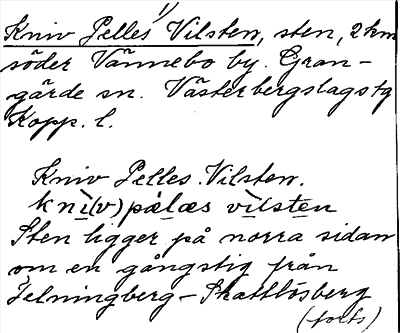 1)
Kniv Pelles Vilsten, sten, 2 km
söder Vännebo by. Gran-
gärde sn. Västerbergslags tg
Kopp. l.
Kniv Pelles Vilsten.
kni(v) pælæs vilsten
Sten ligger på norra sidan
om en gångstig från
Jelningberg - Skattlösberg
(forts)